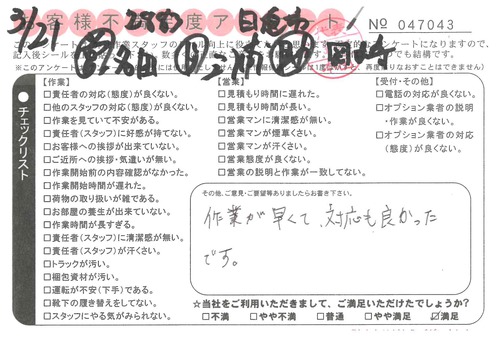 3/29
お客様不満度アンケート
No 047043
●チェックリスト
【作業】
□責任者の対応(態度)が良くない。
□他のスタッフの対応(態度)が良くない。
□作業を見ていて不安がある。
□責任者(スタッフ)に好感が持てない。
□お客様への挨拶が出来ていない。
□ご近所への挨拶・気遣いが無い。
□作業開始前の内容確認がなかった。
□作業開始時間が遅れた。
□荷物の取り扱いが雑である。
□お部屋の養生が出来ていない。
□作業時間が長すぎる。
□責任者(スタッフ)に清潔感が無い。
□責任者(スタッフ)が汗くさい。
□トラックが汚い。
□梱包資材が汚い。
□運転が不安(下手)である。
□靴下の履き替えをしてない。
□スタッフにやる気がみられない。
【営業】
□見積もり時間に遅れた。
□見積もり時間が長い。
□営業マンに清潔感が無い。
□営業マンが煙草くさい。
□営業マンが汗くさい。
□営業態度が良くない。
□営業の説明と作業が一致してない。
【受付・その他】
□電話の対応が良くない。
□オプション業者の説明・作業が良くない。
□オプション業者の対応(態度)が良くない。
その他、ご意見・ご要望等ありましたらお書き下さい。
作業が早くて、対応も良かった
です。
☆当社をご利用いただきまして、ご満足いただけたでしょうか？
□不満 □やや不満 □普通 □やや満足 ☑満足